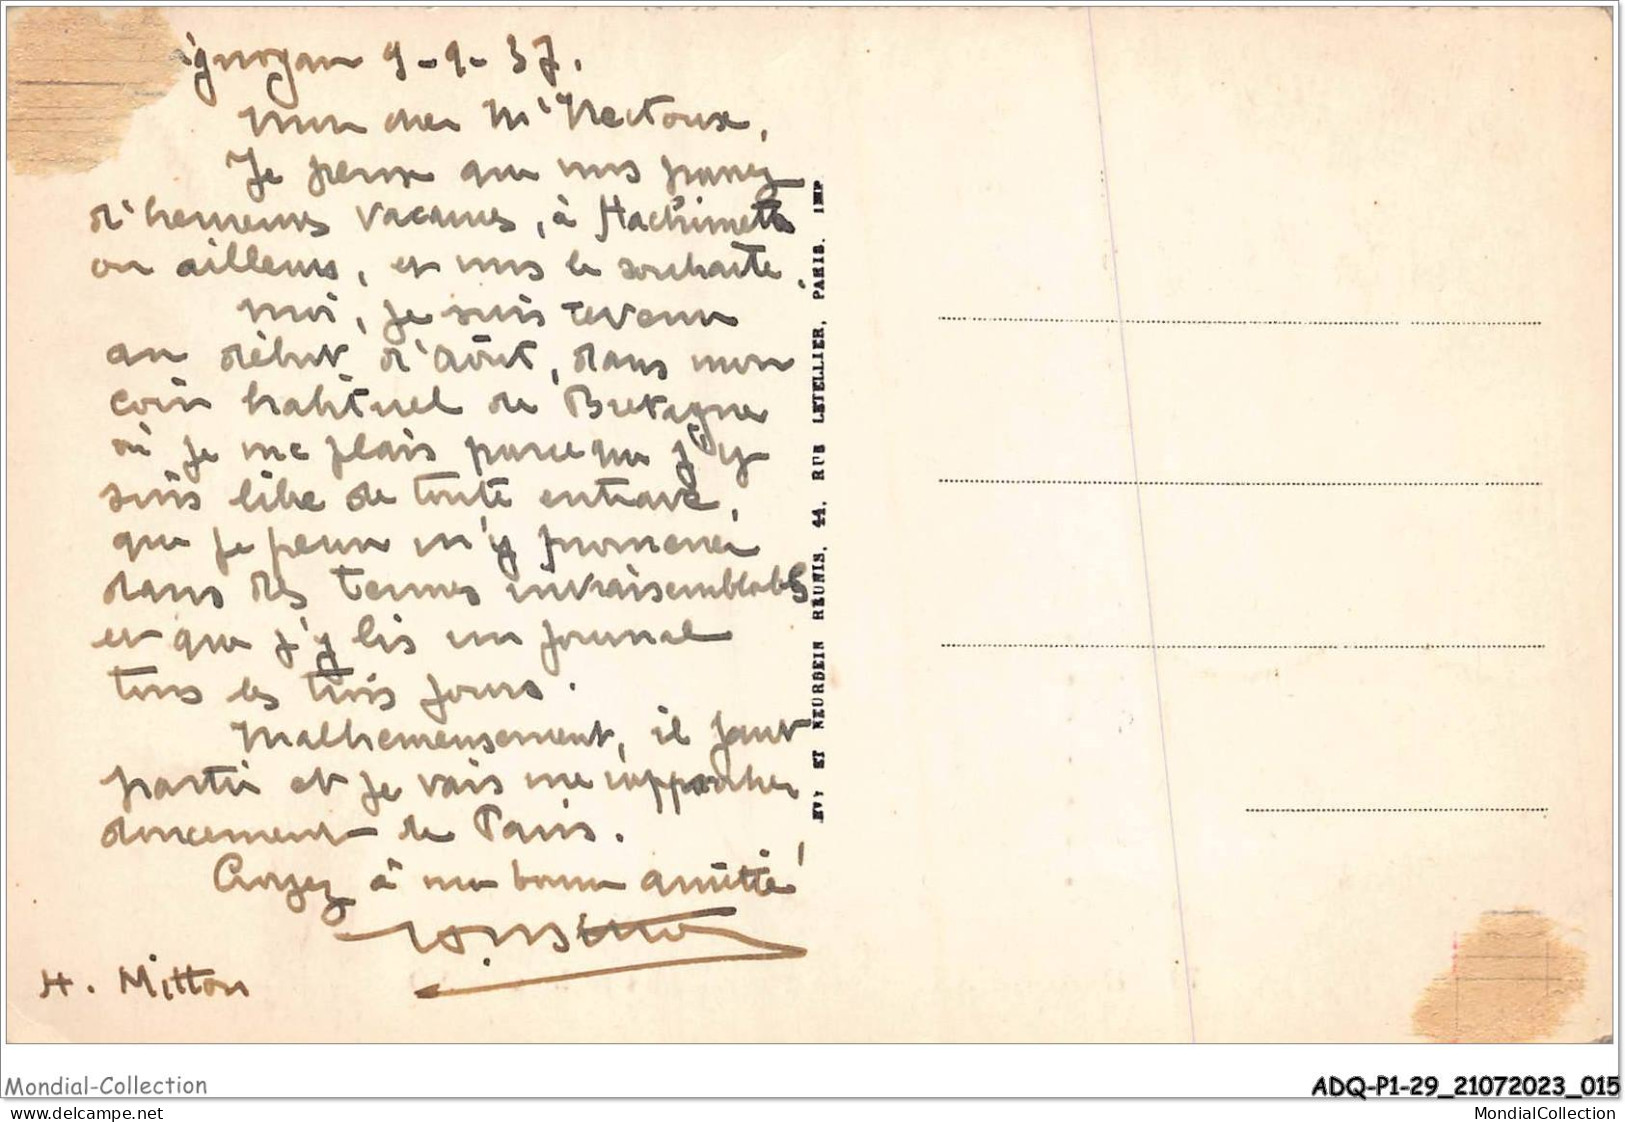 ignogan 9-9-37.
Mon cher Mr Nectoux,
Je pense que vous passez
d'heureuses vacances, à Hachimette
ou ailleurs, et vous le souhaite.
Moi, je suis revenu
au début d'août, dans mon
coin habituel de Bretagne
où je me plais parce que j'y
suis libre de toute entrave,
que je peux m'y promener
dans des tenues invraisemblables
et que j'y lis un journal
tous les trois jours.
Malheureusement, il faut
partir et je vais me rapprocher
doucement de Paris.
Croyez à ma bonne amitié
H. Mitton
EVY ET NEURDEIN REUNIS, 44, RUE LETELLIER, PARIS. IMP
Mondial-Collection
ADQ-P1-29_21072023_015
www.delcampe.net
MondialCollection